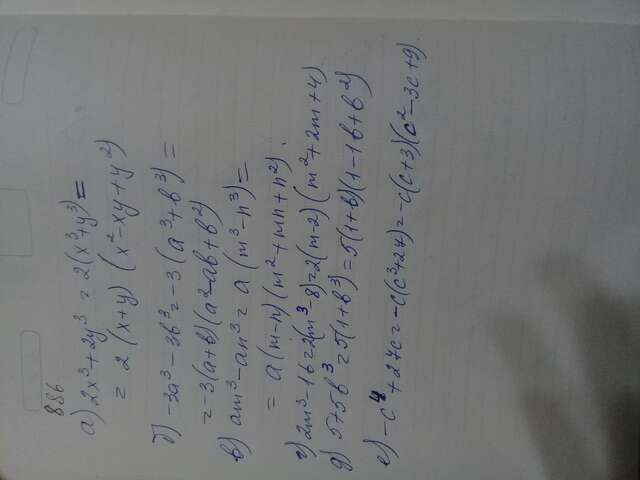 886
а) 2x³+2y³ = 2(x³+y³) =
= 2 (x+y) (x²-xy+y²)
б) -3a³-3b³ = -3 (a³+b³) =
= -3(a+b)(a²-ab+b²)
в) am³-an³ = a (m³-n³) =
= a(m-n)(m²+mn+n²).
г) 2m³-16=2(m³-8)=2(m-2)(m²+2m+4).
д) 5+5b³ = 5(1+b³) = 5(1+b)(1-1b+b²)
е) -c⁴+27c=-c(c³+27)=-c(c+3)(c²-3c+9).